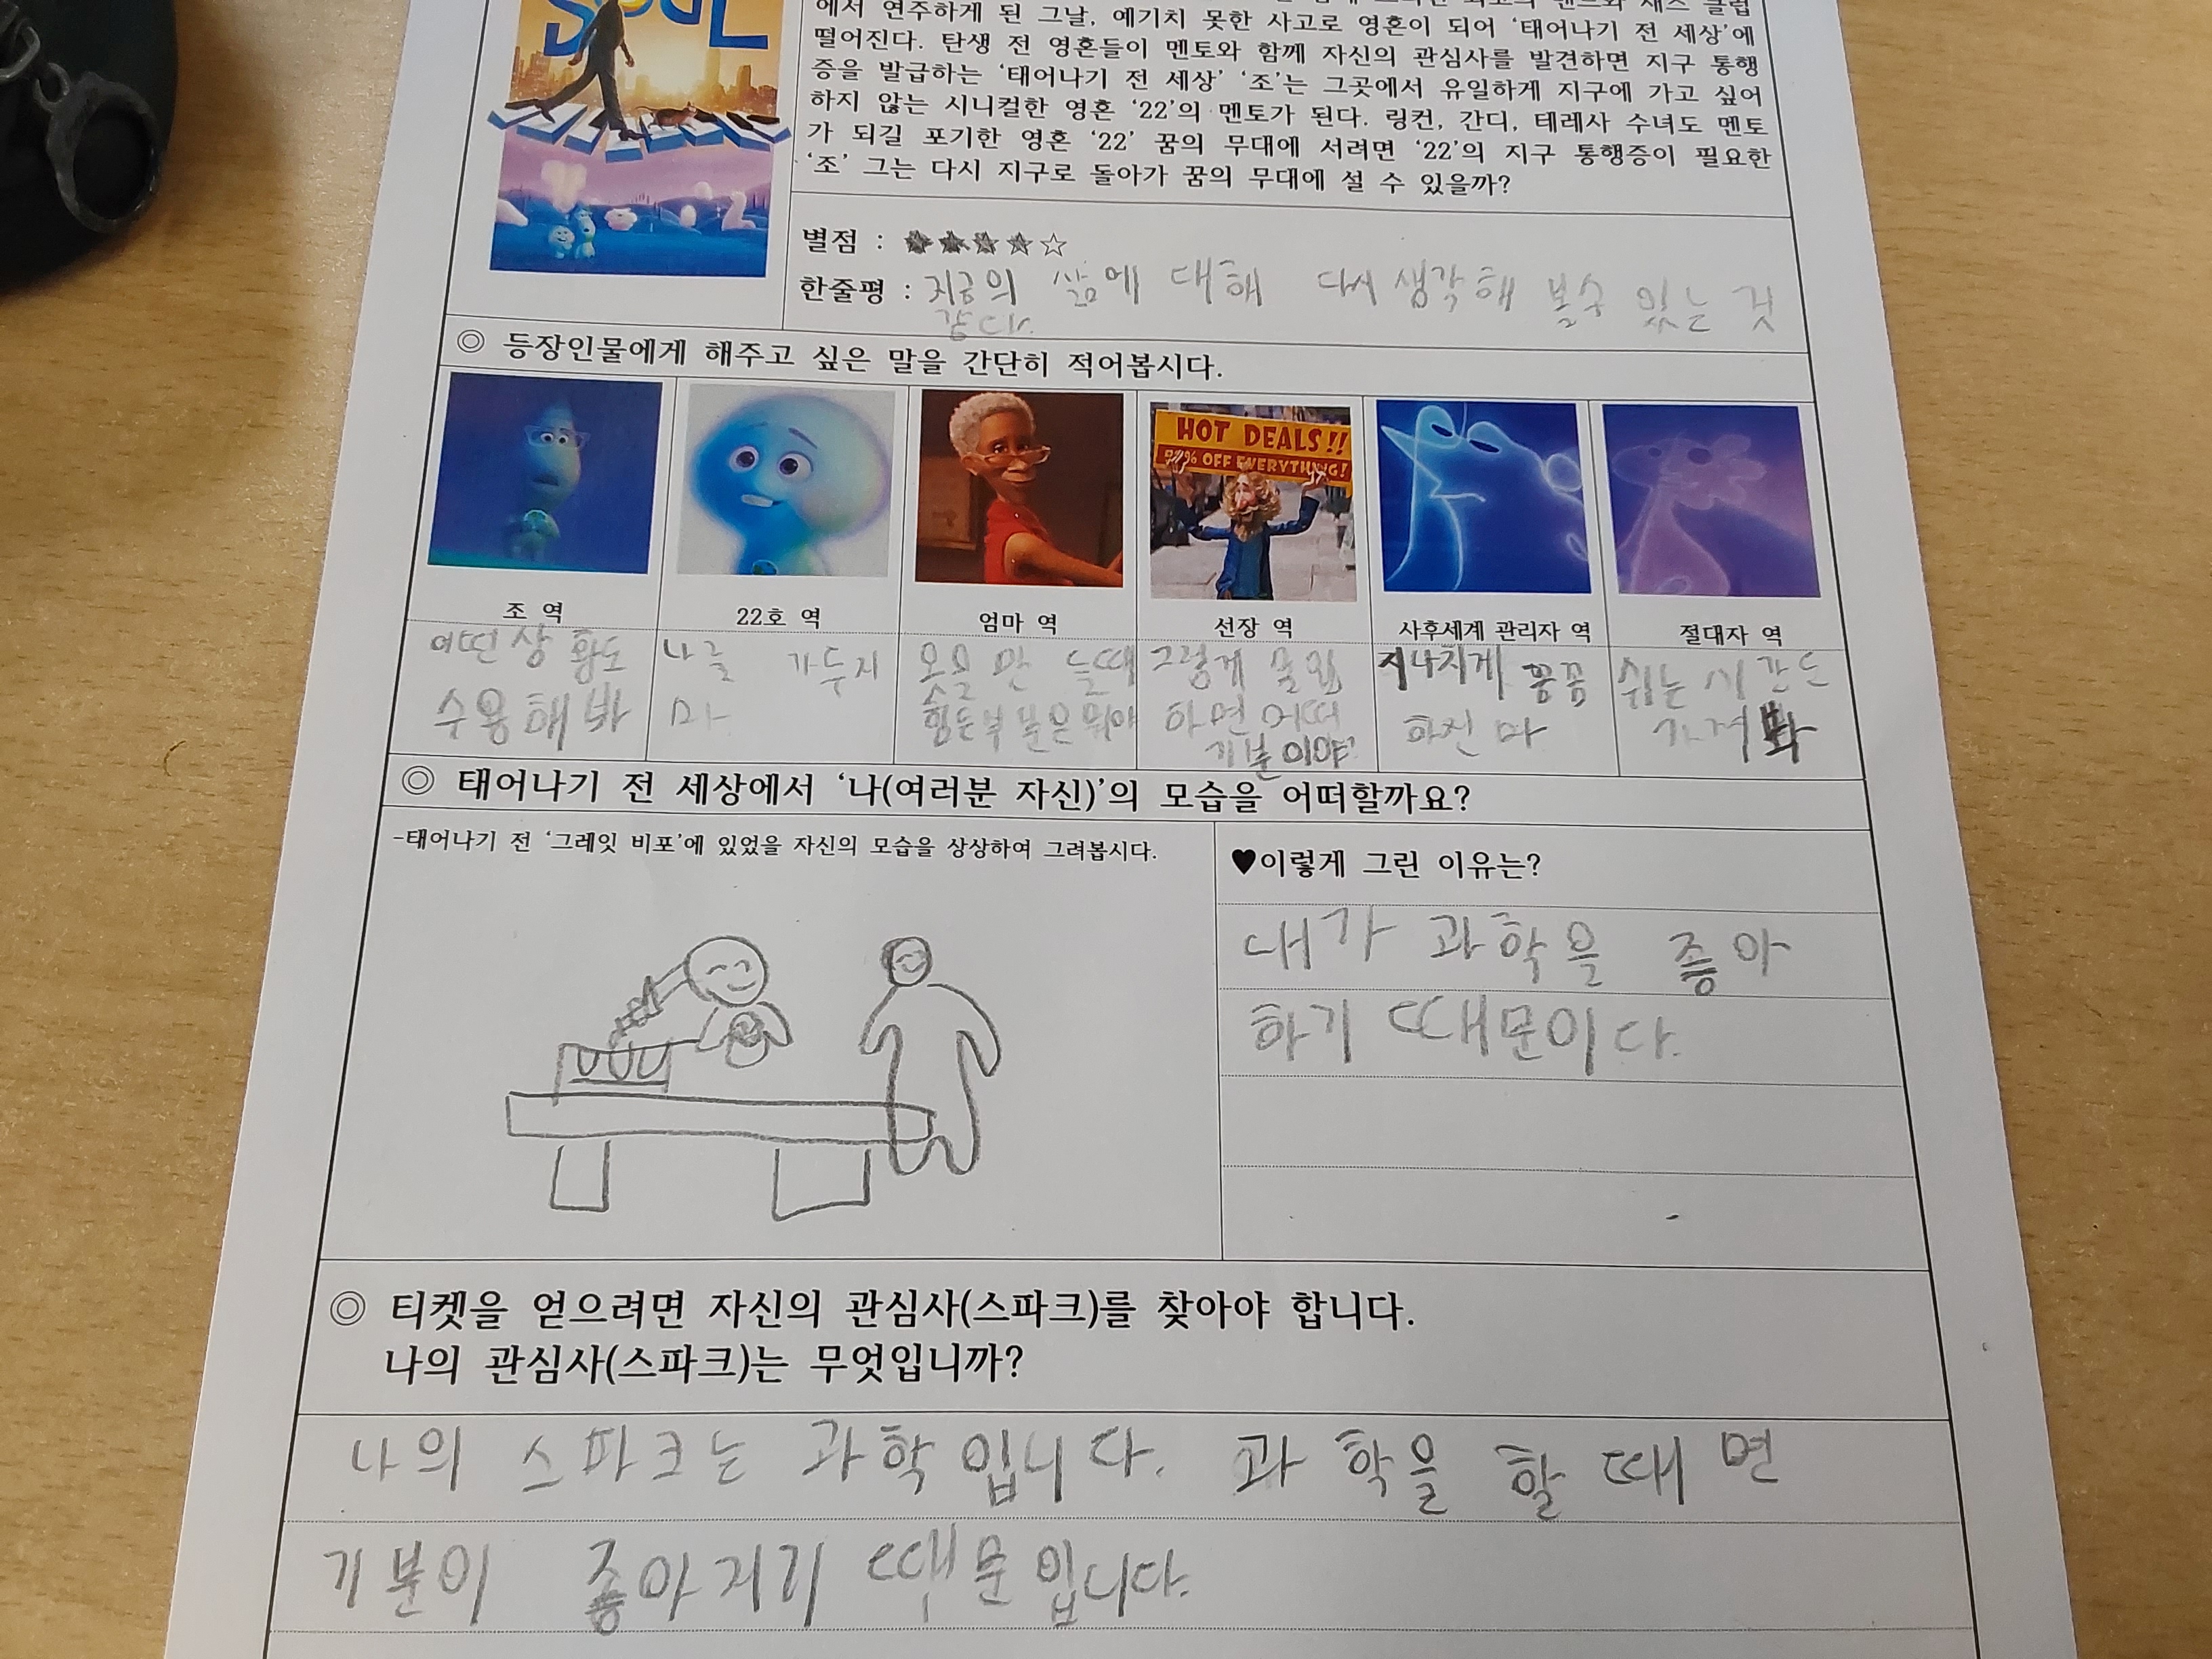 SOUL
에서 연주하게 된 그날, 예기치 못한 사고로 영혼이 되어 ‘태어나기 전 세상’에
떨어진다. 탄생 전 영혼들이 멘토와 함께 자신의 관심사를 발견하면 지구 통행
증을 발급하는 ‘태어나기 전 세상’ ‘조’는 그곳에서 유일하게 지구에 가고 싶어
하지 않는 시니컬한 영혼 ‘22’의 멘토가 된다. 링컨, 간디, 테레사 수녀도 멘토
가 되길 포기한 영혼 ‘22’ 꿈의 무대에 서려면 ‘22’의 지구 통행증이 필요한
‘조’ 그는 다시 지구로 돌아가 꿈의 무대에 설 수 있을까?
별점 : ★★★★☆
한줄평 : 지금의 삶에 대해 다시 생각해 볼수 있는 것
같다.
◎ 등장인물에게 해주고 싶은 말을 간단히 적어봅시다.
HOT DEALS!!
OFF EVERYTHING!
조 역
어떤 상황도
수용해봐
22호 역
나를 가두지
마
엄마 역
옷을 만들때
힘든부분은 뭐야
선장 역
그렇게 몰입
하면 어떠
기분이야?
사후세계 관리자 역
지나치게 꼼꼼
하진 마
절대자 역
쉬는 시간도
가져봐
◎ 태어나기 전 세상에서 ‘나(여러분 자신)’의 모습을 어떠할까요?
-태어나기 전 ‘그레잇 비포’에 있었을 자신의 모습을 상상하여 그려봅시다.
♥이렇게 그린 이유는?
내가 과학을 좋아
하기 때문이다.
◎ 티켓을 얻으려면 자신의 관심사(스파크)를 찾아야 합니다.
나의 관심사(스파크)는 무엇입니까?
나의 스파크는 과학입니다. 과학을 할 때면
기분이 좋아지기 때문입니다.